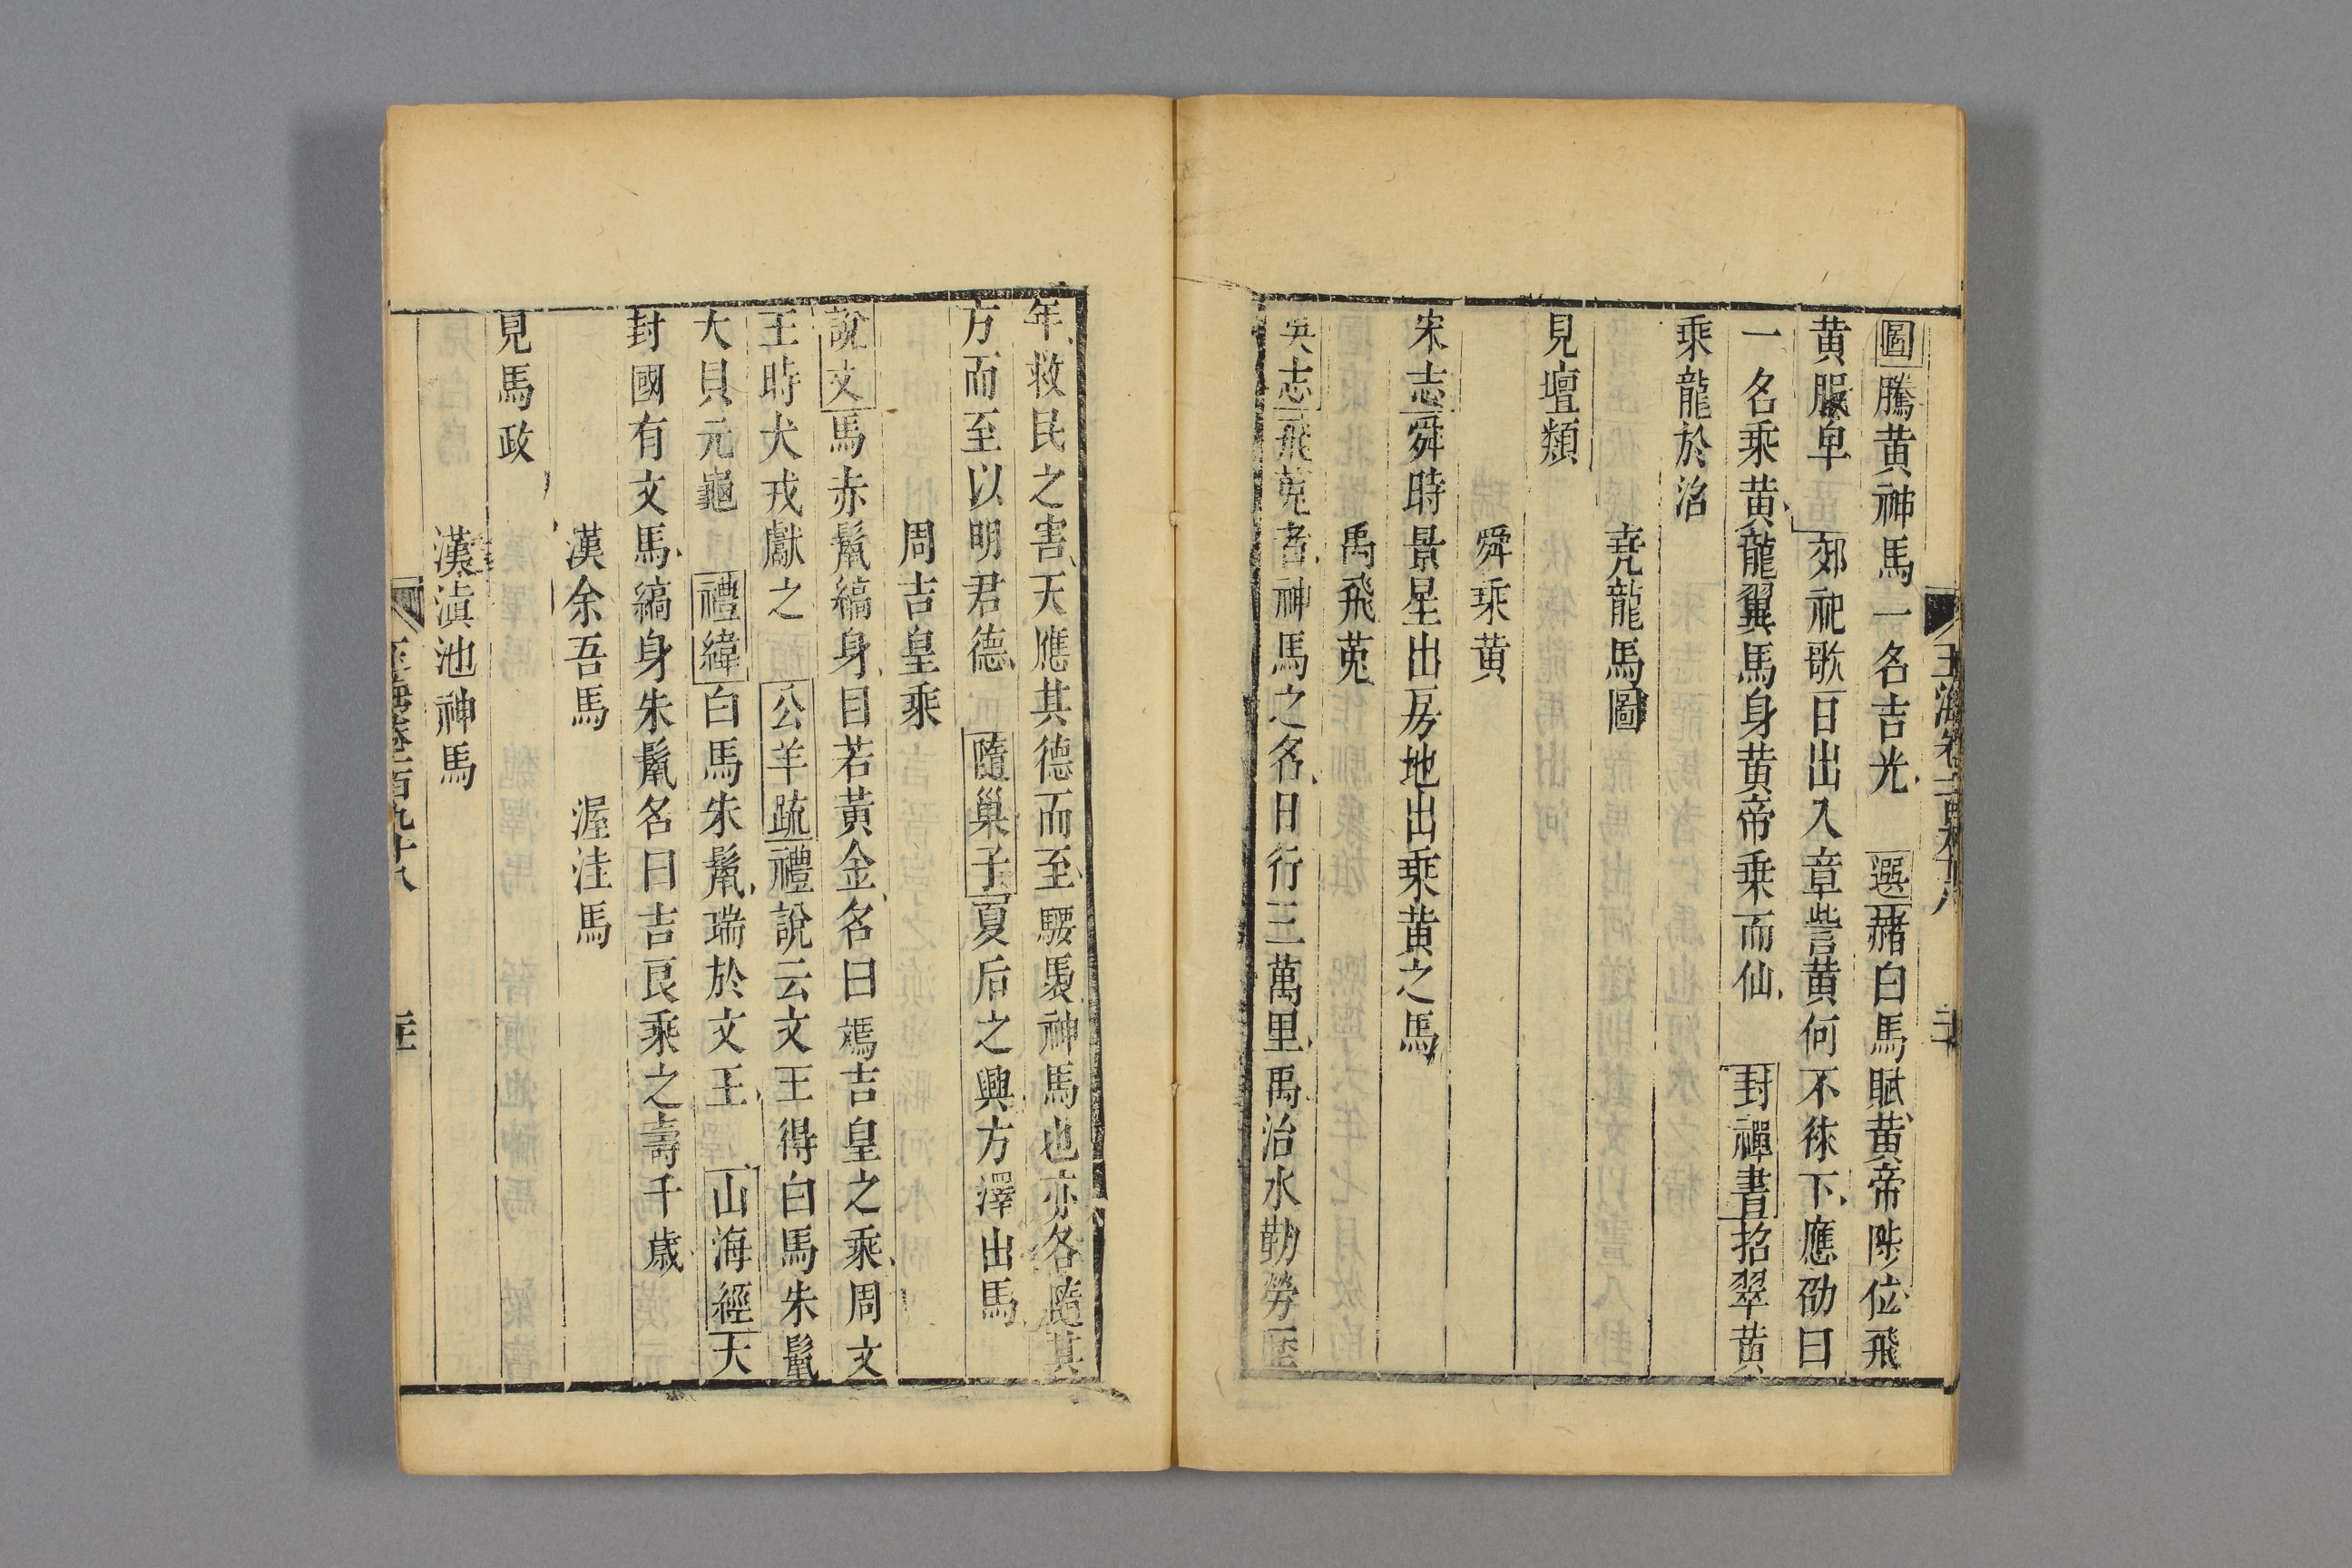 圖騰黄神馬一名吉光選赭白馬賦黄帝陟位飛
黄服皁郊祀歌日出入章訾黄何不徠下應劭曰
一名乘黄龍翼馬身黄帝乘而仙封禪書招翠黄
乘龍於沼
堯龍馬圖
見壇類
舜乘黄
宋志舜時景星出房地出乘黄之馬
禹飛菟
吳志飛菟者神馬之名日行三萬里禹治水勤勞歷
年救民之害天應其德而至騕褭神馬也亦各隨其
方而至以明君德隨巢子夏后之興方澤出馬
周吉皇乘
說文馬赤鬣縞身目若黃金名曰䭴吉皇之乘周文
王時犬戎獻之公羊疏禮說云文王得白馬朱鬣
大貝元龜禮緯白馬朱鬣瑞於文王山海經犬
封國有文馬縞身朱鬣名曰吉良乘之壽千歳
漢余吾馬 渥洼馬
見馬政
漢滇池神馬